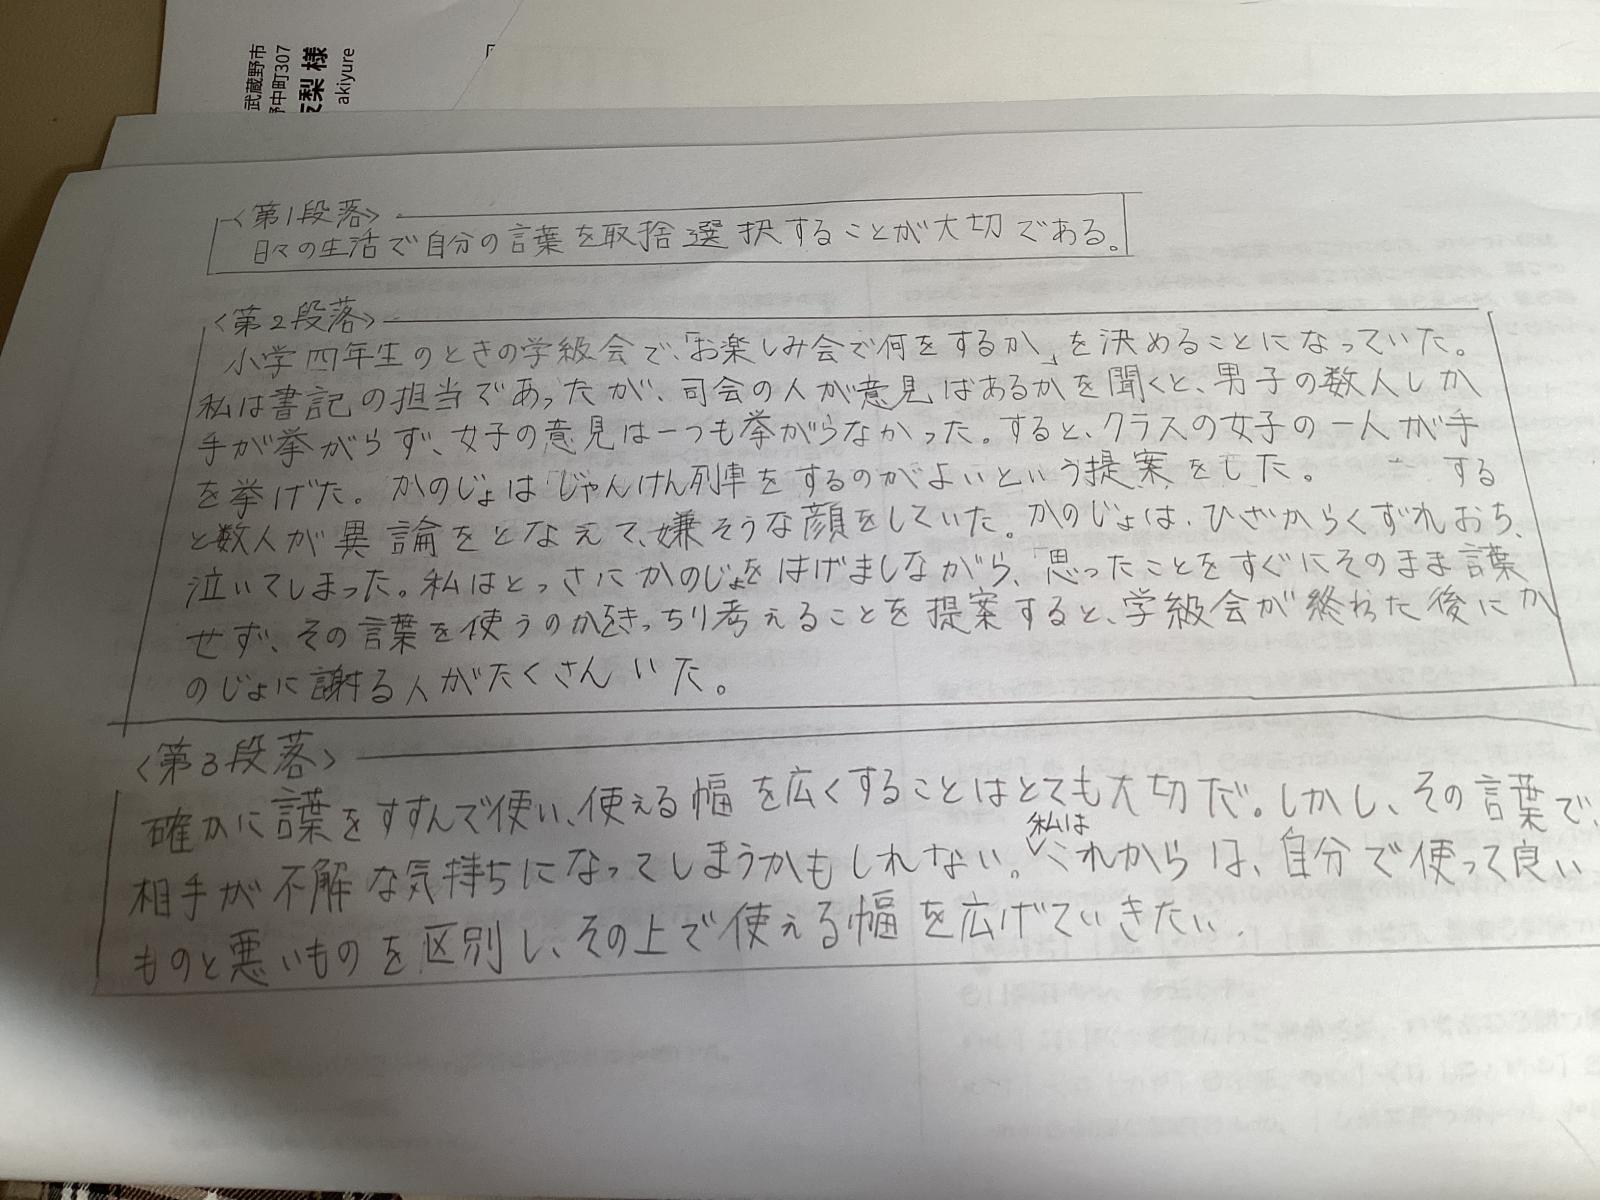 武蔵野市
野中町307
梨 様
akiyure
<第1段落>
日々の生活で自分の言葉を取捨選択することが大切である。
<第2段落>
小学四年生のときの学級会で、「お楽しみ会で何をするか」を決めることになっていた。
私は書記の担当であったが、司会の人が意見はあるかを聞くと、男子の数人しか
手が挙がらず、女子の意見は一つも挙がらなかった。すると、クラスの女子の一人が手
を挙げた。かのじょは「じゃんけん列車をするのがよいという提案をした。 する
と数人が異論をとなえて、嫌そうな顔をしていた。かのじょは、ひざからくずれおち、
泣いてしまった。私はとっさにかのじょをはげましながら、「思ったことをすぐにそのまま言葉
せず、その言葉を使うのかをきっちり考えることを提案すると、学級会が終わた後にか
のじょに謝る人がたくさんいた。
<第3段落>
確かに言葉をすすんで使い、使える幅を広くすることはとても大切だ。しかし、その言葉で、
相手が不解な気持ちになってしまうかもしれない。私はこれからは、自分で使って良い
ものと悪いものを区別し、その上で使える幅を広げていきたい.